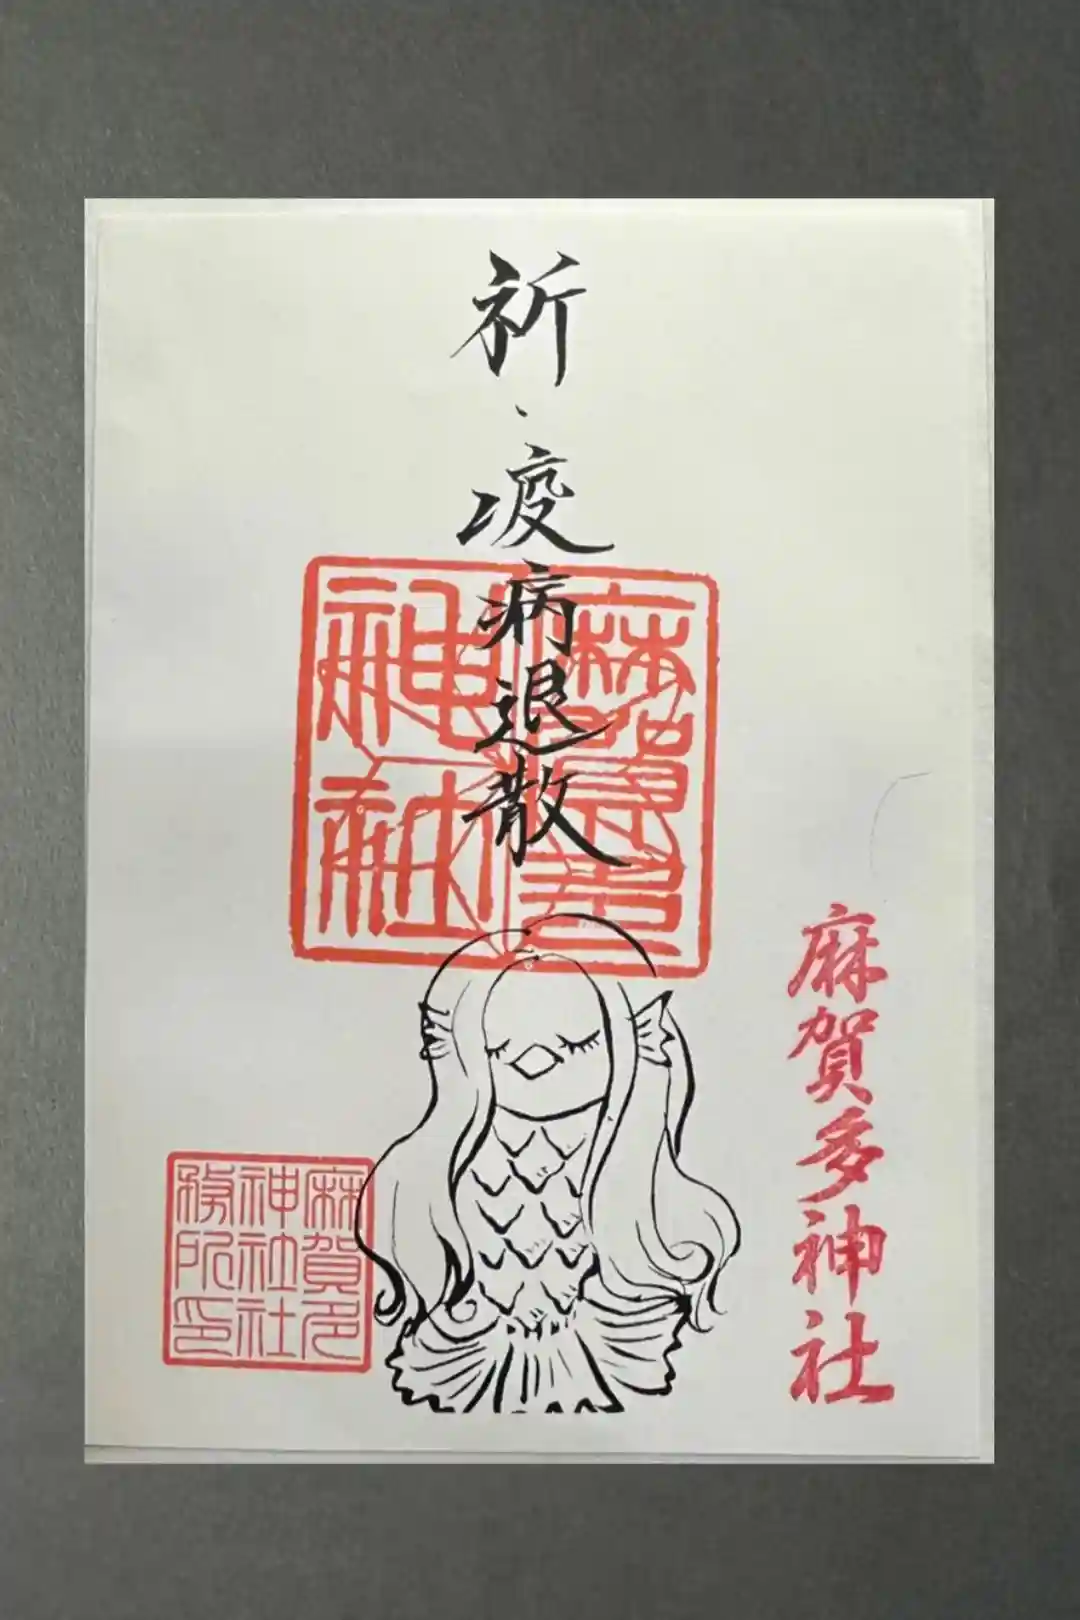 祈、疫病退散
麻賀多神社
麻賀多神社
麻賀多
神社社
務所印